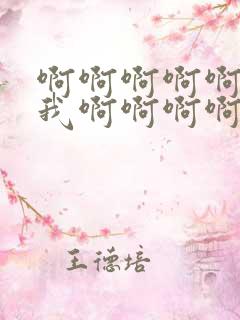 啊啊啊啊啊
我啊啊啊啊
王德培